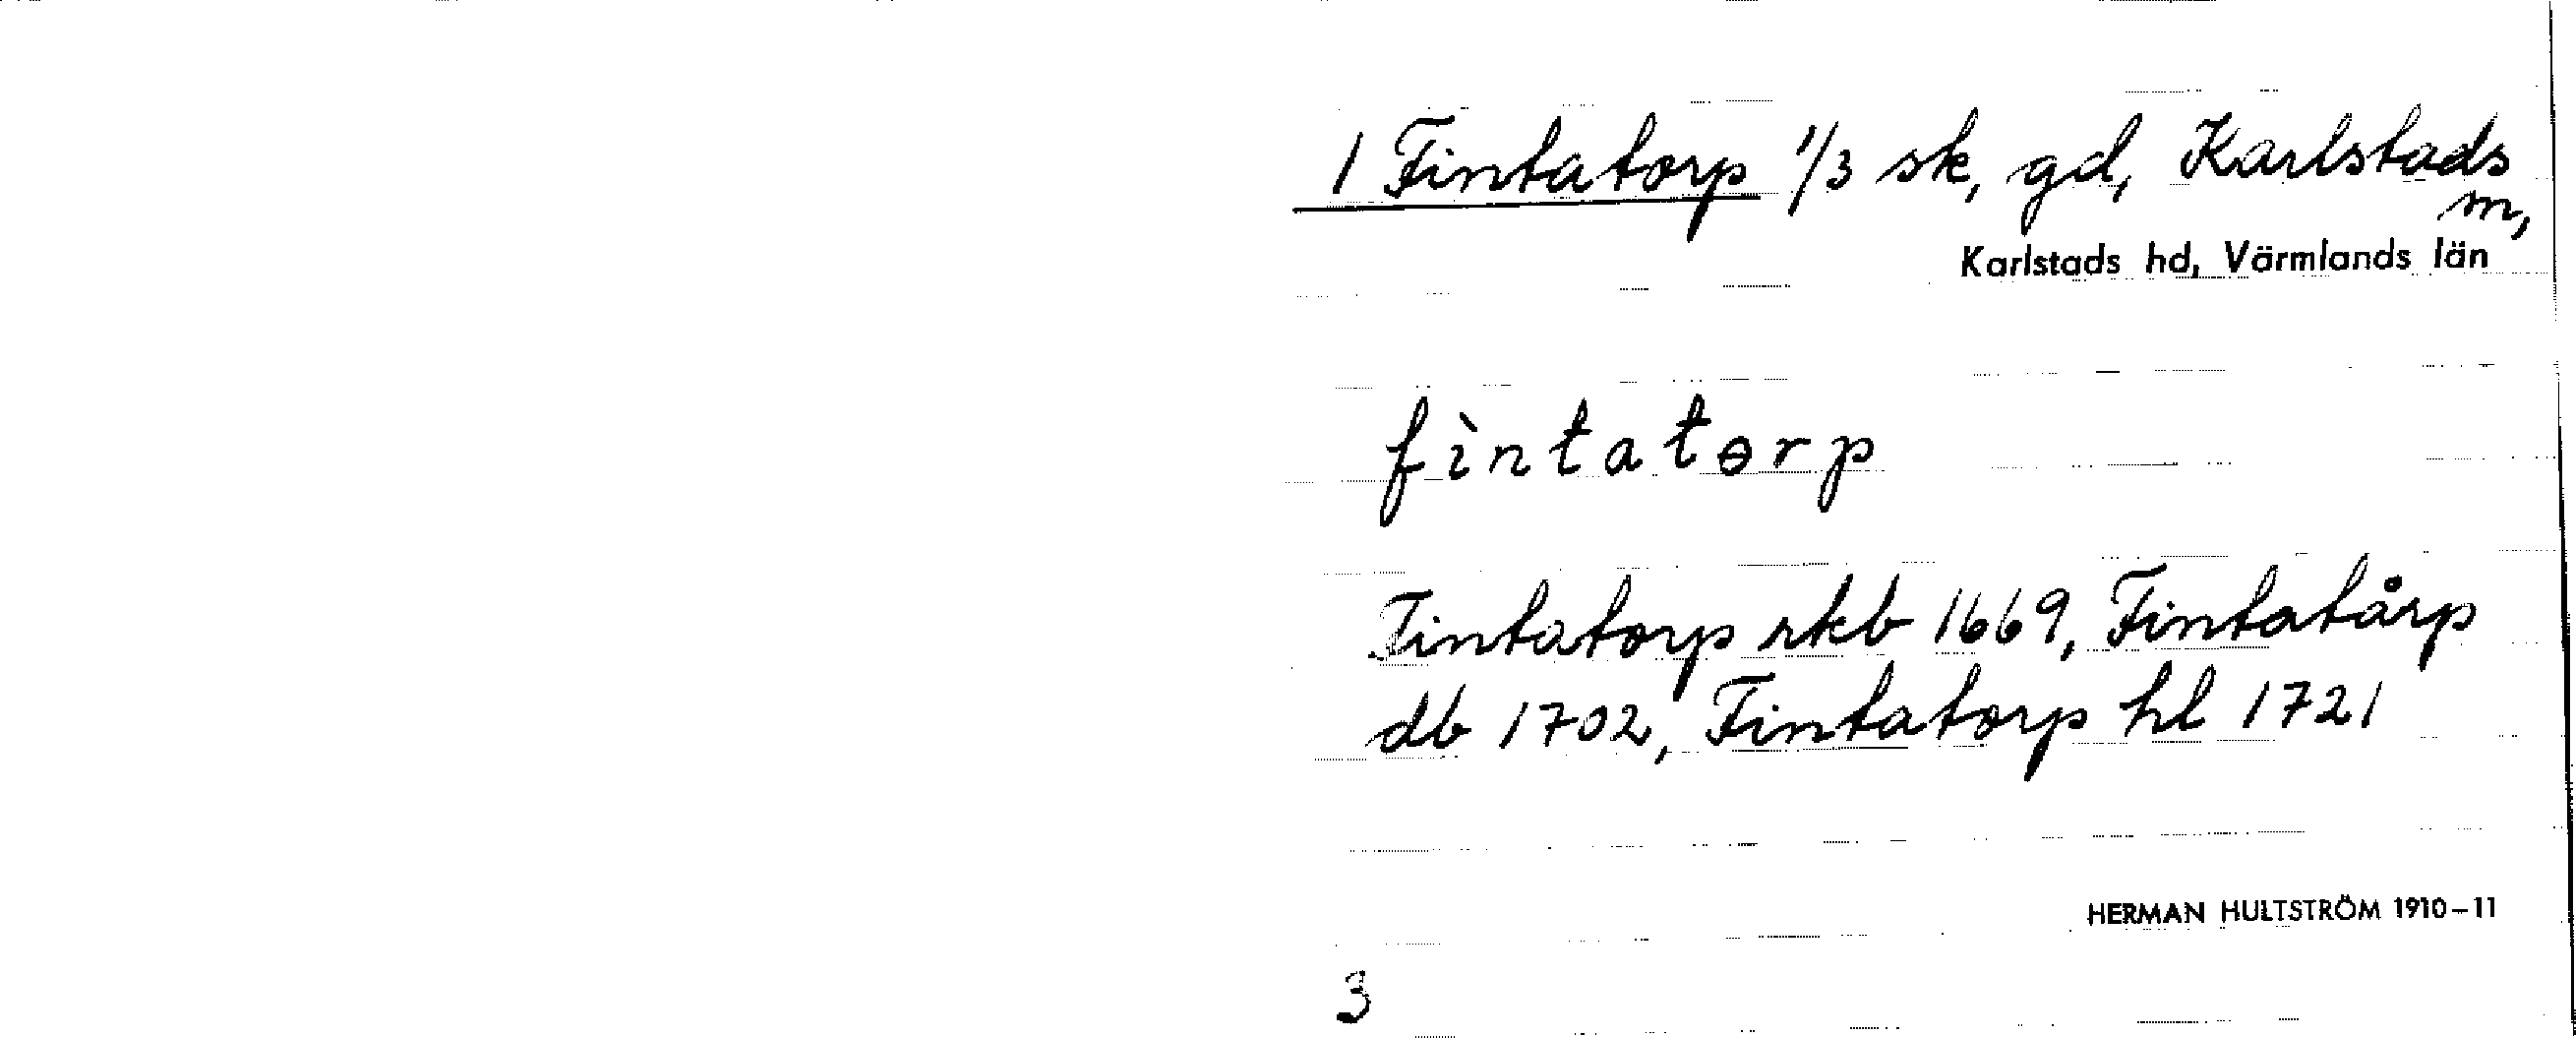 1 Fintatorp 1/3 sk, gd, Karlstads
m,
Karlstads hd, Värmlands län
fìntatɵrp
Fintatorp rkb 1669, Fintatårp
db 1702, Fintatorp hl 1721
HERMAN HULTSTRÖM 1910–11
3